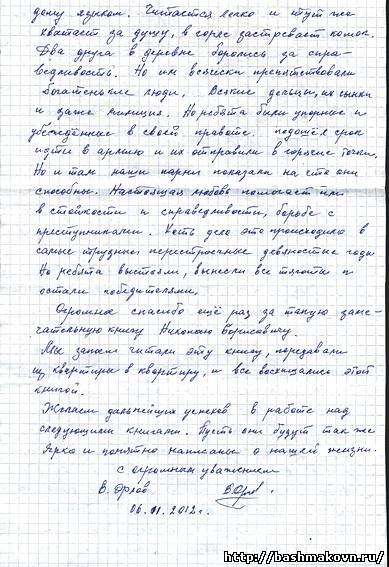 дому языком. Читается легко и тут же
хватает за душу, в горле застревает комок.
Два друга в деревне боролись за спра-
ведливость. Но им всячески препятствовали
богатенькие люди. Всякие дельцы, их сынки
и даже милиция. Но ребята были упорные и
убеждённые в своей правоте. Подошёл срок
идти в армию и их отправили в горячие точки.
Но и там наши парни показали на что они
способны. Настоящая любовь помогает им
в стойкости и справедливости, борьбе с
преступниками. Хоть дело это происходило в
самые трудные перестроечные девяностые годы
Но ребята выстояли, вынесли все тяготы и
остали победителями.
Огромное спасибо ещё раз за такую заме-
чательную книгу Николаю Борисовичу.
Мы запоем читали эту книгу, передавали
из квартиры в квартиру, и все восхищались этой
книгой.
Желаем дальнейших успехов в работе над
следующими книгами. Пусть они будут так же
ярко и понятно написаны о нашей жизни.
С огромным уважением
В. Орлов
06.11.2012 г.
http://bashmakovn.ru/